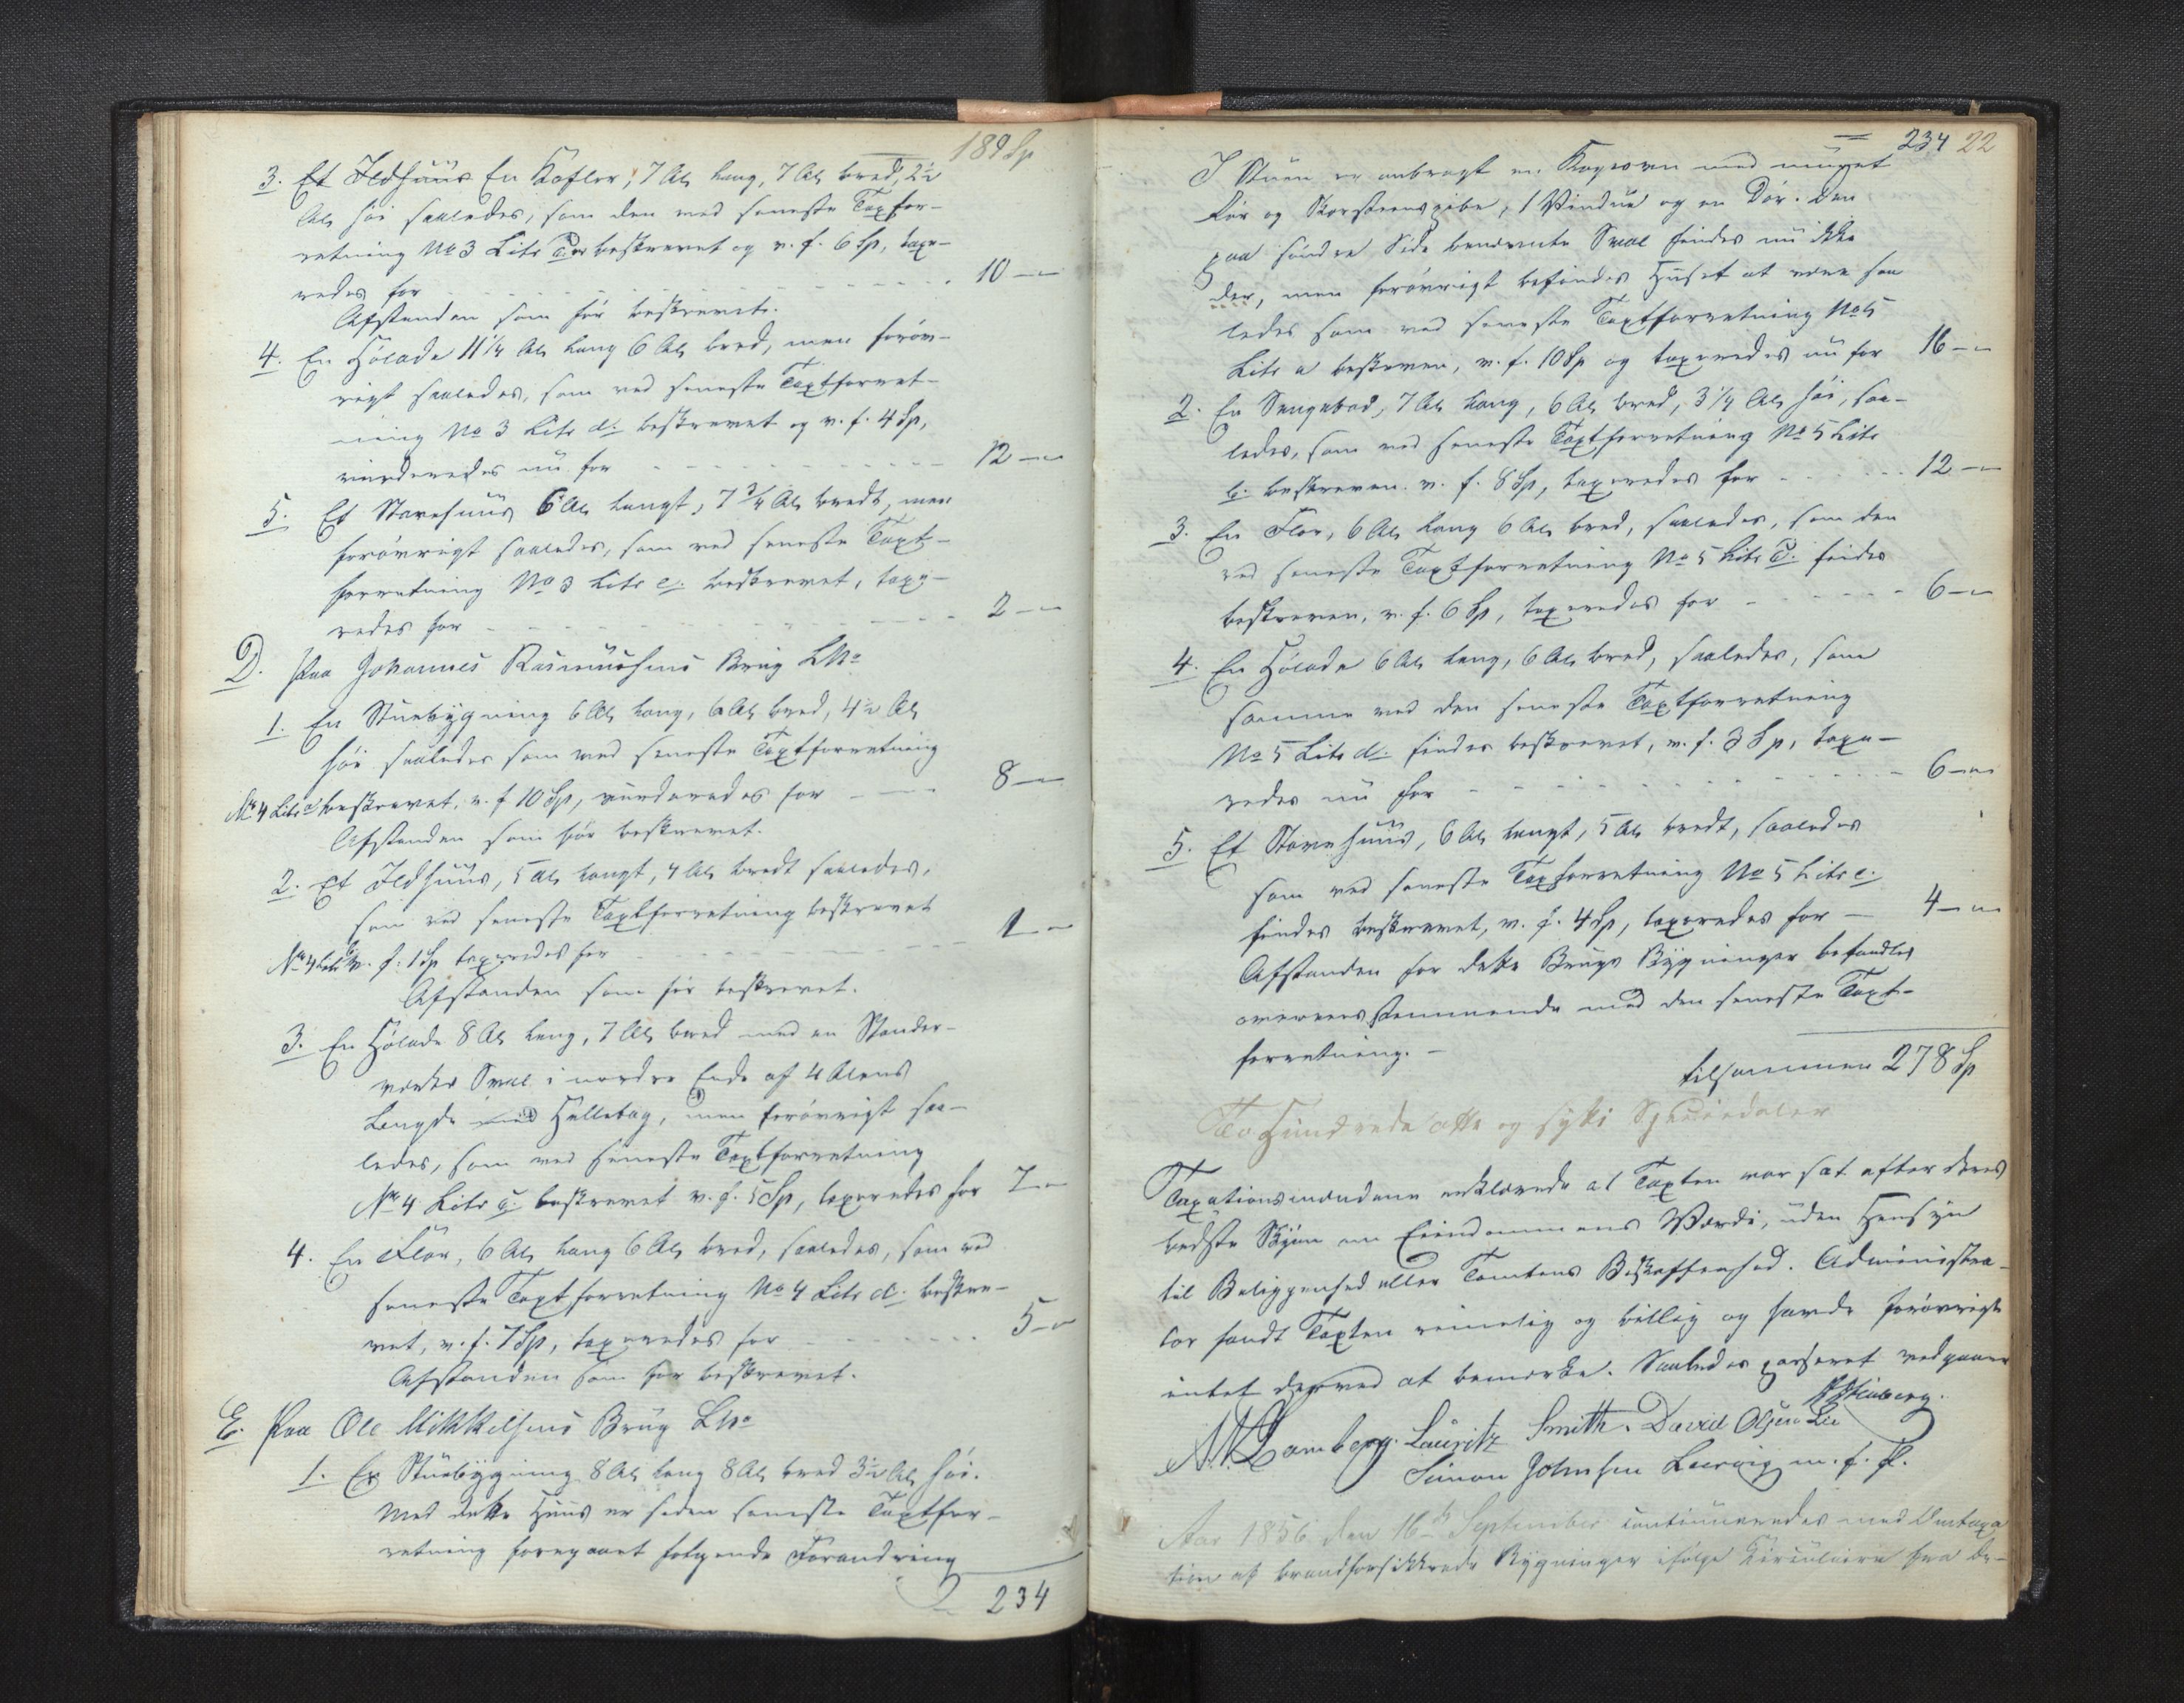 189 Sp
3. Et Ildhuus En Kofler, 7 Al. lang, 7 Al. bred, 2½
Al. høi saaledes, som den ved seneste Taxfor-
retning No 3 Litr c. er beskrevet og v. f. 6 Sp, taxe-
redes for 10 —
Afstanden som før beskrevet.
4. En Hølade 11¼ Al. lang 6 Al. bred, men forøv-
rigt saaledes, som ved seneste Taxtforret-
ning No 3 Litr d. beskrevet og v. f. 4 Sp,
vurderedes nu for 12 —
5. Et Stavehuus 6 Al. langt, 7¾ Al. bredt, men
forøvrigt saaledes, som ved seneste Taxt-
forretning No 3 Litr e. beskrevet, taxe-
redes for 2 —
D. Paa Johannes Rasmussens Brug LNo
1. En Stuebygning 6 Al. lang, 6 Al. bred, 4½ Al.
høi saaledes som ved seneste Taxtforretning
No 4 Litr a beskrevet, v. f. 10 Sp, vurderedes for 8 —
Afstanden som før beskrevet.
2. Et Ildhuus, 5 Al. langt, 4 Al. bredt saaledes,
som ved seneste Taxtforretning beskrevet
No 4 Litr b. v. f. 1 Sp taxeredes for 1 —
Afstanden som før beskrevet.
3. En Hølade 8 Al. lang, 7 Al. bred med en Stander-
værks Sval i nordre Ende af 4 Alens
Længde med Helletag, men forøvrigt saa-
ledes, som ved seneste Taxtforretning
No 4 Litr c. beskrevet v. f. 5 Sp, taxeredes for 7 —
4. En Flor, 6 Al. lang 6 Al. bred, saaledes, som ved
seneste Taxtforretning No 4 Litr d. beskre-
vet, v. f. 7 Sp, taxeredes for 5 —
Afstanden som før beskrevet.
E. Paa Ole Mikkelsens Brug LNo
1. En Stuebygning 8 Al. lang 8 Al. bred 3½ Al. høi.
Med dette Huus er siden seneste Taxtfor-
retning foregaaet følgende Forandring
234
234 22
I Stuen er anbragt en Kogeovn med muret
Rør og Skorsteenspibe, 1 Vindue og en Dør. Den
paa søndre Side benævnte Sval findes nu ikke
der, men forøvrigt befindes Huset at være saa
ledes som ved seneste Taxtforretning No 5
Litr a beskreven, v. f. 10 Sp og taxeredes nu for 16 —
2. En Sengebod, 7 Al. lang, 6 Al. bred, 3¼ Al. høi, saa-
ledes, som ved seneste Taxtforretning No 5 Litr
b. beskreven v. f. 8 Sp, taxeredes for 12 —
3. En Flor, 6 Al. lang 6 Al. bred, saaledes, som den
ved seneste Taxtforretning No 5 Litr c. findes
beskreven, v. f. 6 Sp, taxeredes for 6 —
4. En Hølade 6 Al. lang, 6 Al. bred, saaledes, som
samme ved den seneste Taxtforretning
No 5 Litr d. findes beskrevet, v. f. 3 Sp, taxe-
redes nu for 6 —
5. Et Stavehuus, 6 Al. langt, 5 Al. bredt, saaledes
som ved seneste Taxforretning No 5 Litr e.
findes beskrevet, v. f. 4 Sp, taxeredes for 4 —
Afstanden for dette Brugs Bygninger befandtes
overeensstemmende med den seneste Taxt-
forretning. —
tilsammen 278 Sp
To Hundrede otte og sytti Speciedaler
Taxationsmændene erklærede at Taxten var sat efter deres
bedste Skjøn om Eiendommens Værdi, uden Hensyn
til Beliggenhed eller Tomtens Beskaffenhed. Administra-
tor fandt Taxten rimelig og billig og havde forøvrigt
intet derved at bemærke. Saaledes passeret vedgaaer
Lauritz Smith. David Olsen Lie
Simon Johnsen Leervig m. f. P.
Aar 1856 den 16de September continueredes med Omtaxa
tion af brandforsikkrede Bygninger ifølge Circulaire fra De-